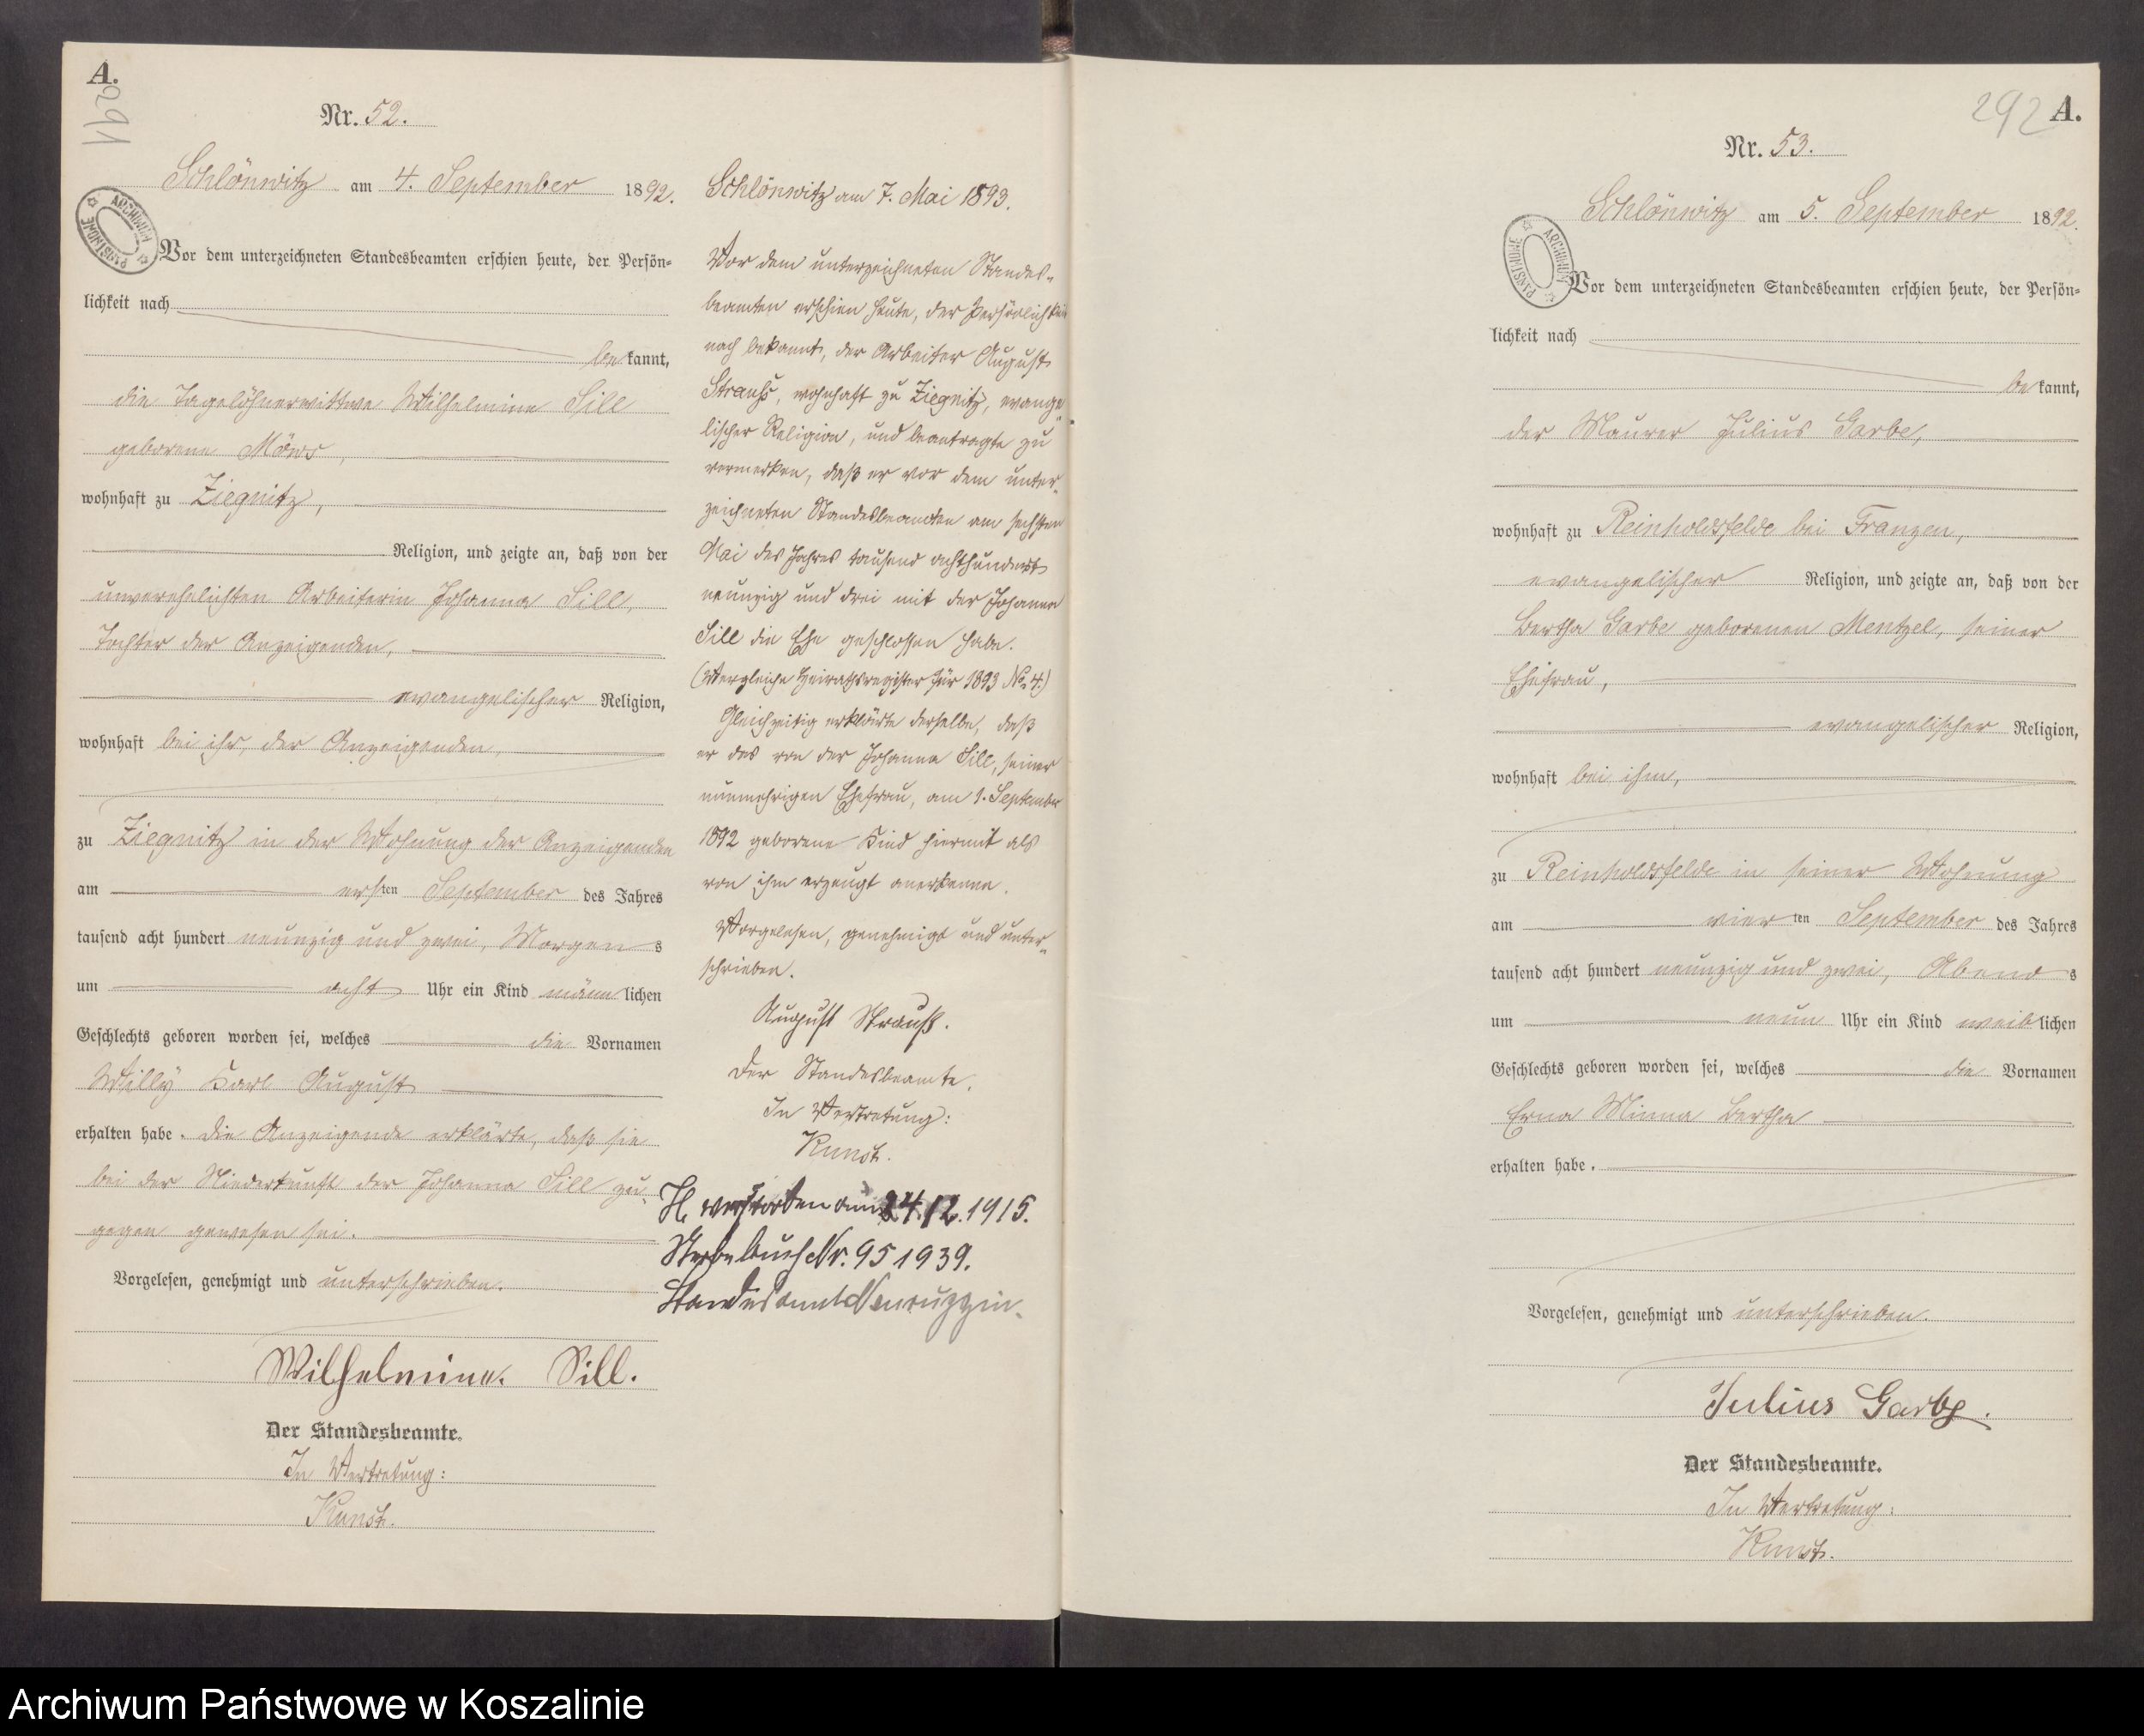 A.
291
Nr. 52.
Schlönwitz am 4. September 1892.
Vor dem unterzeichneten Standesbeamten erschien heute, der Persön-
lichkeit nach
be kannt,
die Tagelöhnerwittwe Wilhelmine Sill
geborene Möws,
wohnhaft zu Ziegnitz,
Religion, und zeigte an, daß von der
unverehelichten Arbeiterin Johanna Sill,
Tochter der Anzeigenden,
evangelischer Religion,
wohnhaft bei ihr, der Anzeigenden,
zu Ziegnitz in der Wohnung der Anzeigenden
am ersten September des Jahres
tausend acht hundert neunzig und zwei, Morgens
um acht Uhr ein Kind männlichen
Geschlechts geboren worden sei, welches die Vornamen
Willy Karl August
erhalten habe. Die Anzeigende erklärte, daß sie
bei der Niederkunft der Johanna Sill zu-
gegen gewesen sei.
Vorgelesen, genehmigt und unterschrieben.
Wilhelmine Sill.
Der Standesbeamte.
In Vertretung:
Kunst.
Schlönwitz am 7. Mai 1893.
Vor dem unterzeichneten Standes-
beamten erschien heute, der Persönlichkeit
nach bekannt, der Arbeiter August
Strauß, wohnhaft zu Ziegnitz, evange-
lischer Religion, und beantragte zu
vermerken, daß er vor dem unter-
zeichneten Standesbeamten am sechsten
Mai des Jahres tausend achthundert
neunzig und drei mit der Johanna
Sill die Ehe geschlossen habe.
(Vergleiche Heirathsregister für 1893 No 4.)
Gleichzeitig erklärte derselbe, daß
er das von der Johanna Sill, seiner
nunmehrigen Ehefrau, am 1. September
1892 geborene Kind hiermit als
von ihm erzeugt anerkenne.
Vorgelesen, genehmigt und unter-
schrieben.
August Strauß.
Der Standesbeamte.
In Vertretung:
Kunst.
verstorben am 24.12.1915.
Sterbebuch Nr. 95 1939.
Standesamt Neuruppin.
292
A.
Nr. 53.
Schlönwitz am 5. September 1892.
Vor dem unterzeichneten Standesbeamten erschien heute, der Persön-
lichkeit nach
be kannt,
der Maurer Julius Garbe,
wohnhaft zu Reinholdsfelde bei Franzen,
evangelischer Religion, und zeigte an, daß von der
Bertha Garbe geborenen Mentzel, seiner
Ehefrau,
evangelischer Religion,
wohnhaft bei ihm,
zu Reinholdsfelde in seiner Wohnung
am vierten September des Jahres
tausend acht hundert neunzig und zwei, Abends
um neun Uhr ein Kind weiblichen
Geschlechts geboren worden sei, welches die Vornamen
Erna Minna Bertha
erhalten habe.
Vorgelesen, genehmigt und unterschrieben.
Julius Garbe.
Der Standesbeamte.
In Vertretung:
Kunst.
ARCHIWUM PAŃSTWOWE
ARCHIWUM PAŃSTWOWE
Archiwum Państwowe w Koszalinie